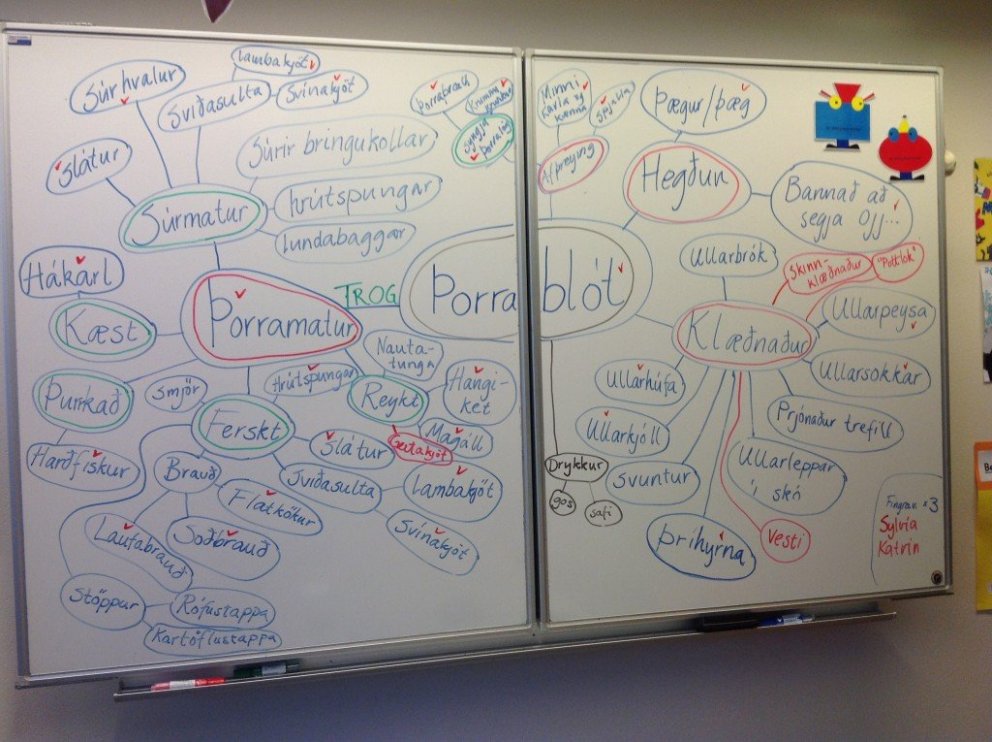 Súrhvalur
Lambakjöt
Sviðasulta
Svínakjöt
Slátur
Súrir bringukollar
hrútspungar
Lundabaggar
Súrmatur
Hákarl
Kæst
Þorramatur
TROG
Þurrkað
Harðfiskur
Smjör
Hrútspungar
Ferskt
Nauta-
tunga
Reykt
Hangi-
ket
Magáll
Slátur
Sviðasulta
Lambakjöt
Svínakjöt
Brauð
Flatkökur
Soðbrauð
Laufabrauð
Stöppur
Rófustappa
Kartöflustappa
Þorraþræll
syngja
Þorralög
Þorra
blót
Minni
karla og
kvenna
Afþreying
Þægur/þæg
Hegðun
Bannað að
segja Ojj...
Ullarbrók
Skinn-
klæðnaður
"Pottlok"
Klæðnaður
Ullarpeysa
Ullarsokkar
Prjónaður trefill
Ullarleppar
í skó
Vesti
Þríhyrna
Svuntur
Ullarkjóll
Ullarhúfa
Drykkur
gos
safi
Fingran x3
Sylvía
Katrín